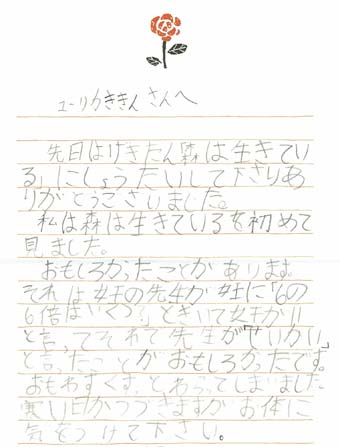 ユーリカききん さんへ
先日はげきだん「森は生きてい
る」にしょうたいして下さりあ
りがとうございました。
私は森は生きているを初めて
見ました。
おもしろかったことがあります
それは女王の先生が女王に「6の
6倍はいくつ?」ときいて女王が「11
と言ってそれで先生が「せいかい」
と言ったことがおもしろかったです。
おもわずくすっとわらってしまいました
寒い日がつづきますがお体に
気をつけて下さい。